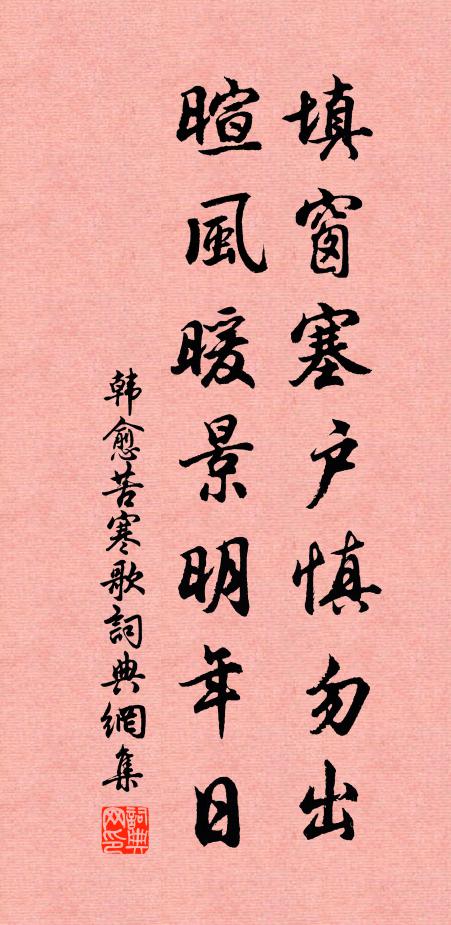 填窗塞户慎勿出
暄風暖景明年日
韩愈苦寒歌詞典網集
詞典网印